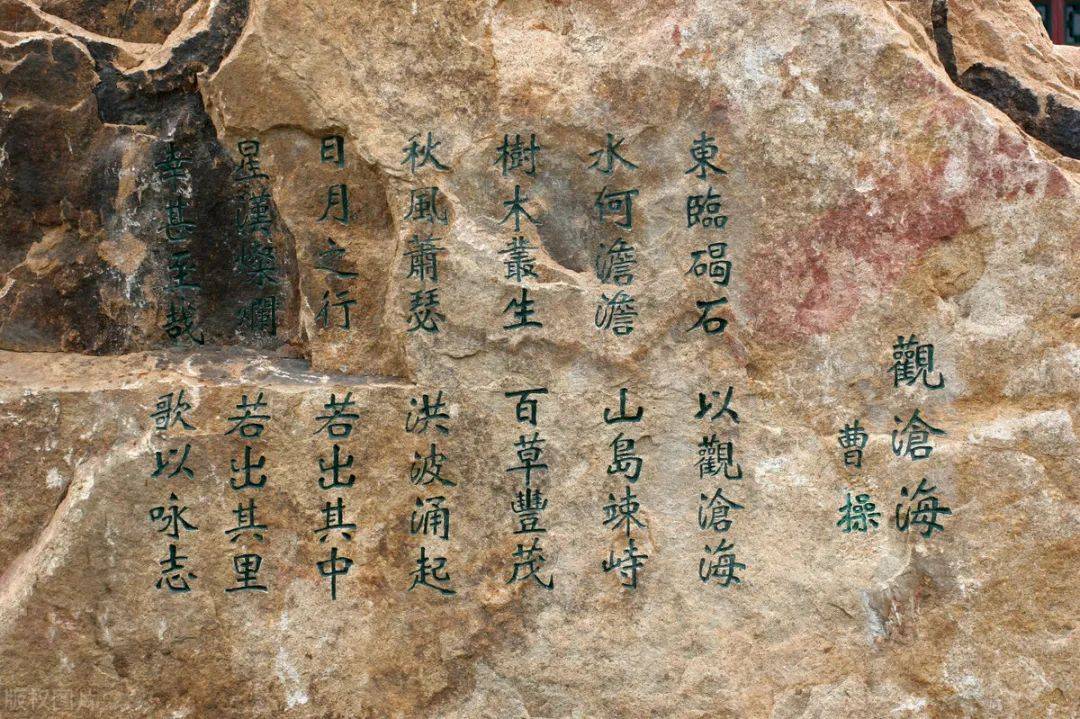 觀滄海
曹操
東臨碣石 以觀滄海
水何澹澹 山島竦峙
樹木叢生 百草豐茂
秋風蕭瑟 洪波涌起
日月之行 若出其中
星漢燦爛 若出其里
幸甚至哉 歌以咏志
版权图库